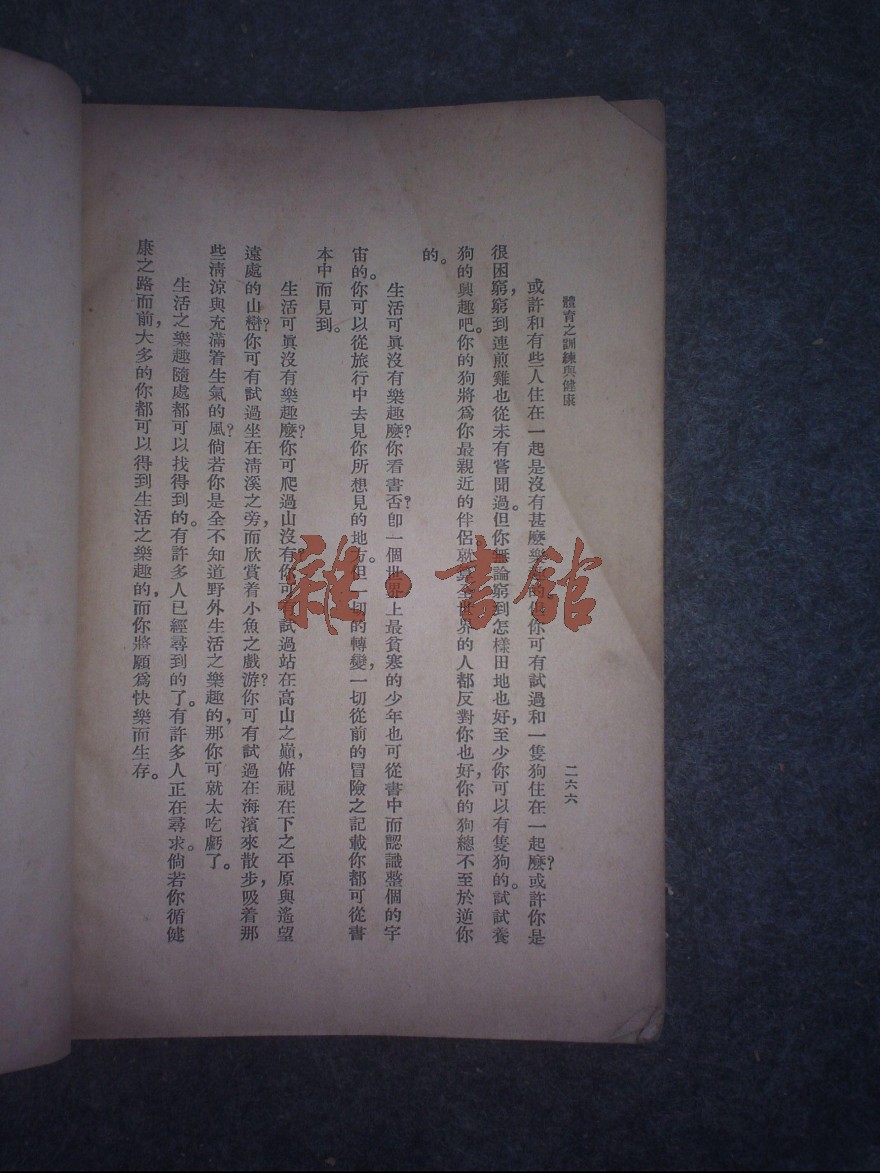 體育之訓練與健康
二六六
或許和有些人住在一起是沒有甚麽樂趣的但你可有試過和一隻狗住在一起麽?或許你是
很困窮,窮到連煎雞也從未有嘗聞過。但你無論窮到怎樣田地也好,至少你可以有隻狗的。試試養
狗的興趣吧。你的狗將爲你最親近的伴侶就算全世界的人都反對你也好,你的狗總不至於逆你
的。
生活可眞沒有樂趣麽?你看書否?卽一個世界上最貧寒的少年也可從書中而認識整個的宇
宙的。你可以從旅行中去見你所想見的地方。但一切的轉變,一切從前的冒險之記載你都可從書
本中而見到。
生活可眞沒有樂趣麽?你可爬過山沒有?你可有試過站在高山之巓,俯視在下之平原與遙望
遠處的山巒?你可有試過坐在淸溪之旁,而欣賞着小魚之戲游?你可有試過在海濱來散步,吸着那
些淸涼與充滿着生氣的風?倘若你是全不知道野外生活之樂趣的,那你可就太吃虧了。
生活之樂趣隨處都可以找得到的。有許多人已經尋到的了。有許多人正在尋求。倘若你循健
康之路而前,大多的你都可以得到生活之樂趣的,而你將願爲快樂而生存。
雜·書館